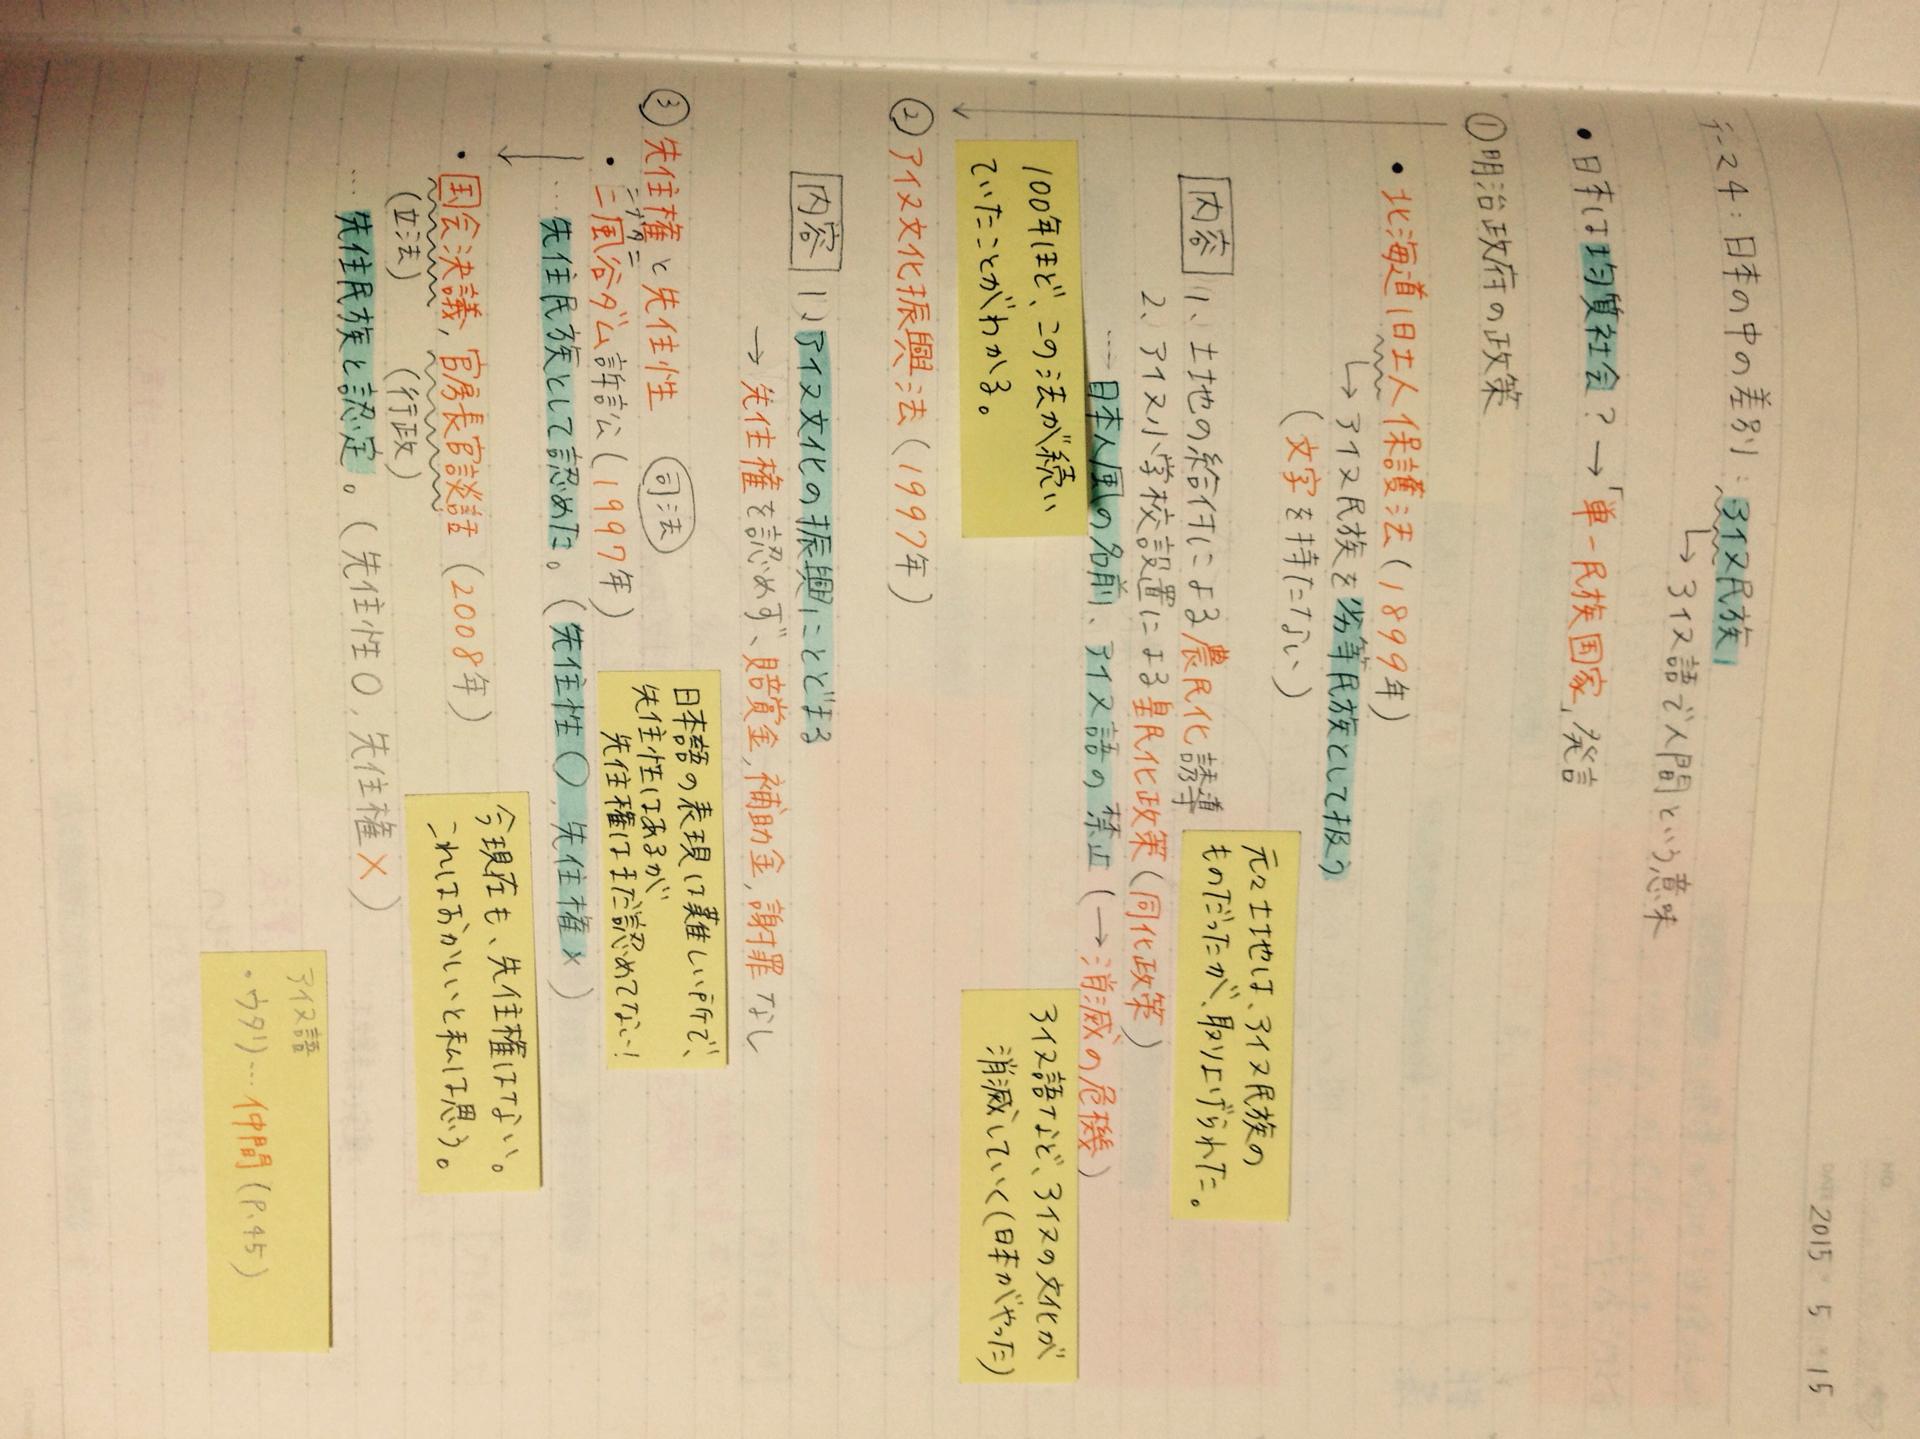 NO.
DATE 2015・5・15
テーマ4:日本の中の差別:アイヌ民族
↳アイヌ語で人間という意味
・日本は均質社会?→「単一民族国家」発言
①明治政府の政策
・北海道旧土人保護法(1899年)
↳アイヌ民族を劣等民族として扱う
(文字を持たない)
内容 1、土地の給付による農民化誘導
元々土地は、アイヌ民族の
ものだったが、取り上げられた。
2、アイヌ小学校設置による皇民化政策(同化政策)
…日本人風の名前、アイヌ語の禁止(→消滅の危機)
100年ほど、この法が続い
ていたことがわかる。
アイヌ語など、アイヌの文化が
消滅していく(日本がやった)
②アイヌ文化振興法(1997年)
内容 1、アイヌ文化の振興にとどまる
→先住権を認めず、賠償金,補助金,謝罪なし
③先住権と先住性 司法
日本語の表現は難しい所で、
先住性はあるが、
先住権はまだ認めてない!
・二風谷ダム訴訟(1997年)
ニブタニ
…先住民族として認めた。(先住性○,先住権×)
・国会決議,官房長官談話(2008年)
(立法) (行政)
今現在も、先住権はない。
これはおかしいと私は思う。
…先住民族と認定。(先住性○,先住権×)
アイヌ語
・ウタリ…仲間(P.45)